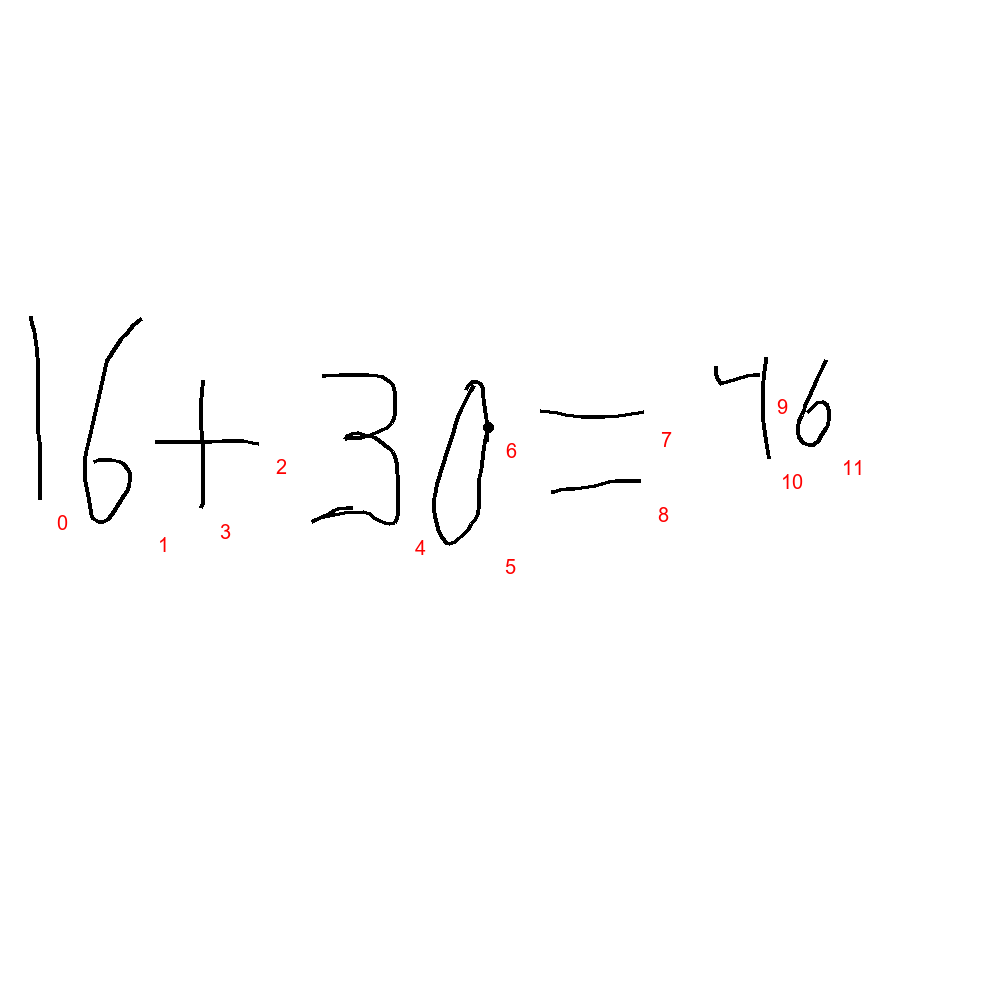 16+30=46
0 1 2 3 4 5 6 7 8 9 10 11